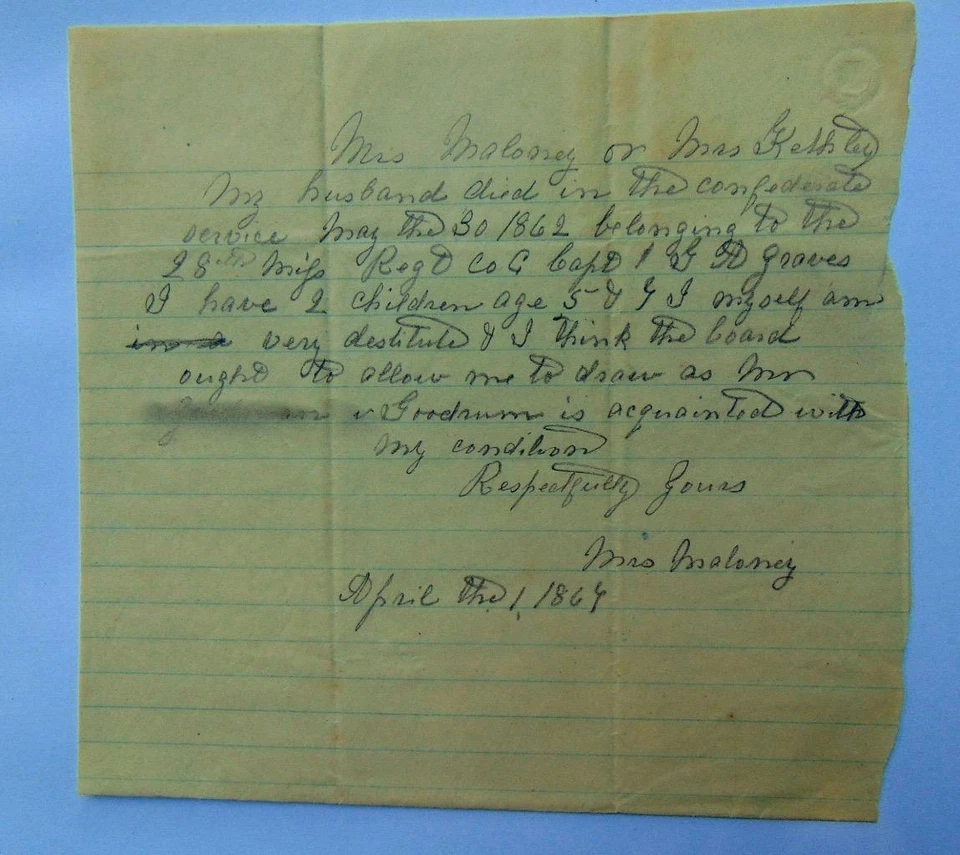 Mrs Maloney or Mrs Kethley
My husband died in the confederate
service May the 30 1862 belonging to the
28th Miss Regt Co G Capt G D graves
I have 2 children age 5 & 7 I myself am
very destitute & I think the board
ought to allow me to draw as Mr
Goodrum is acquainted with
my condition
Respectfully Yours
Mrs Maloney
April the 1, 1864